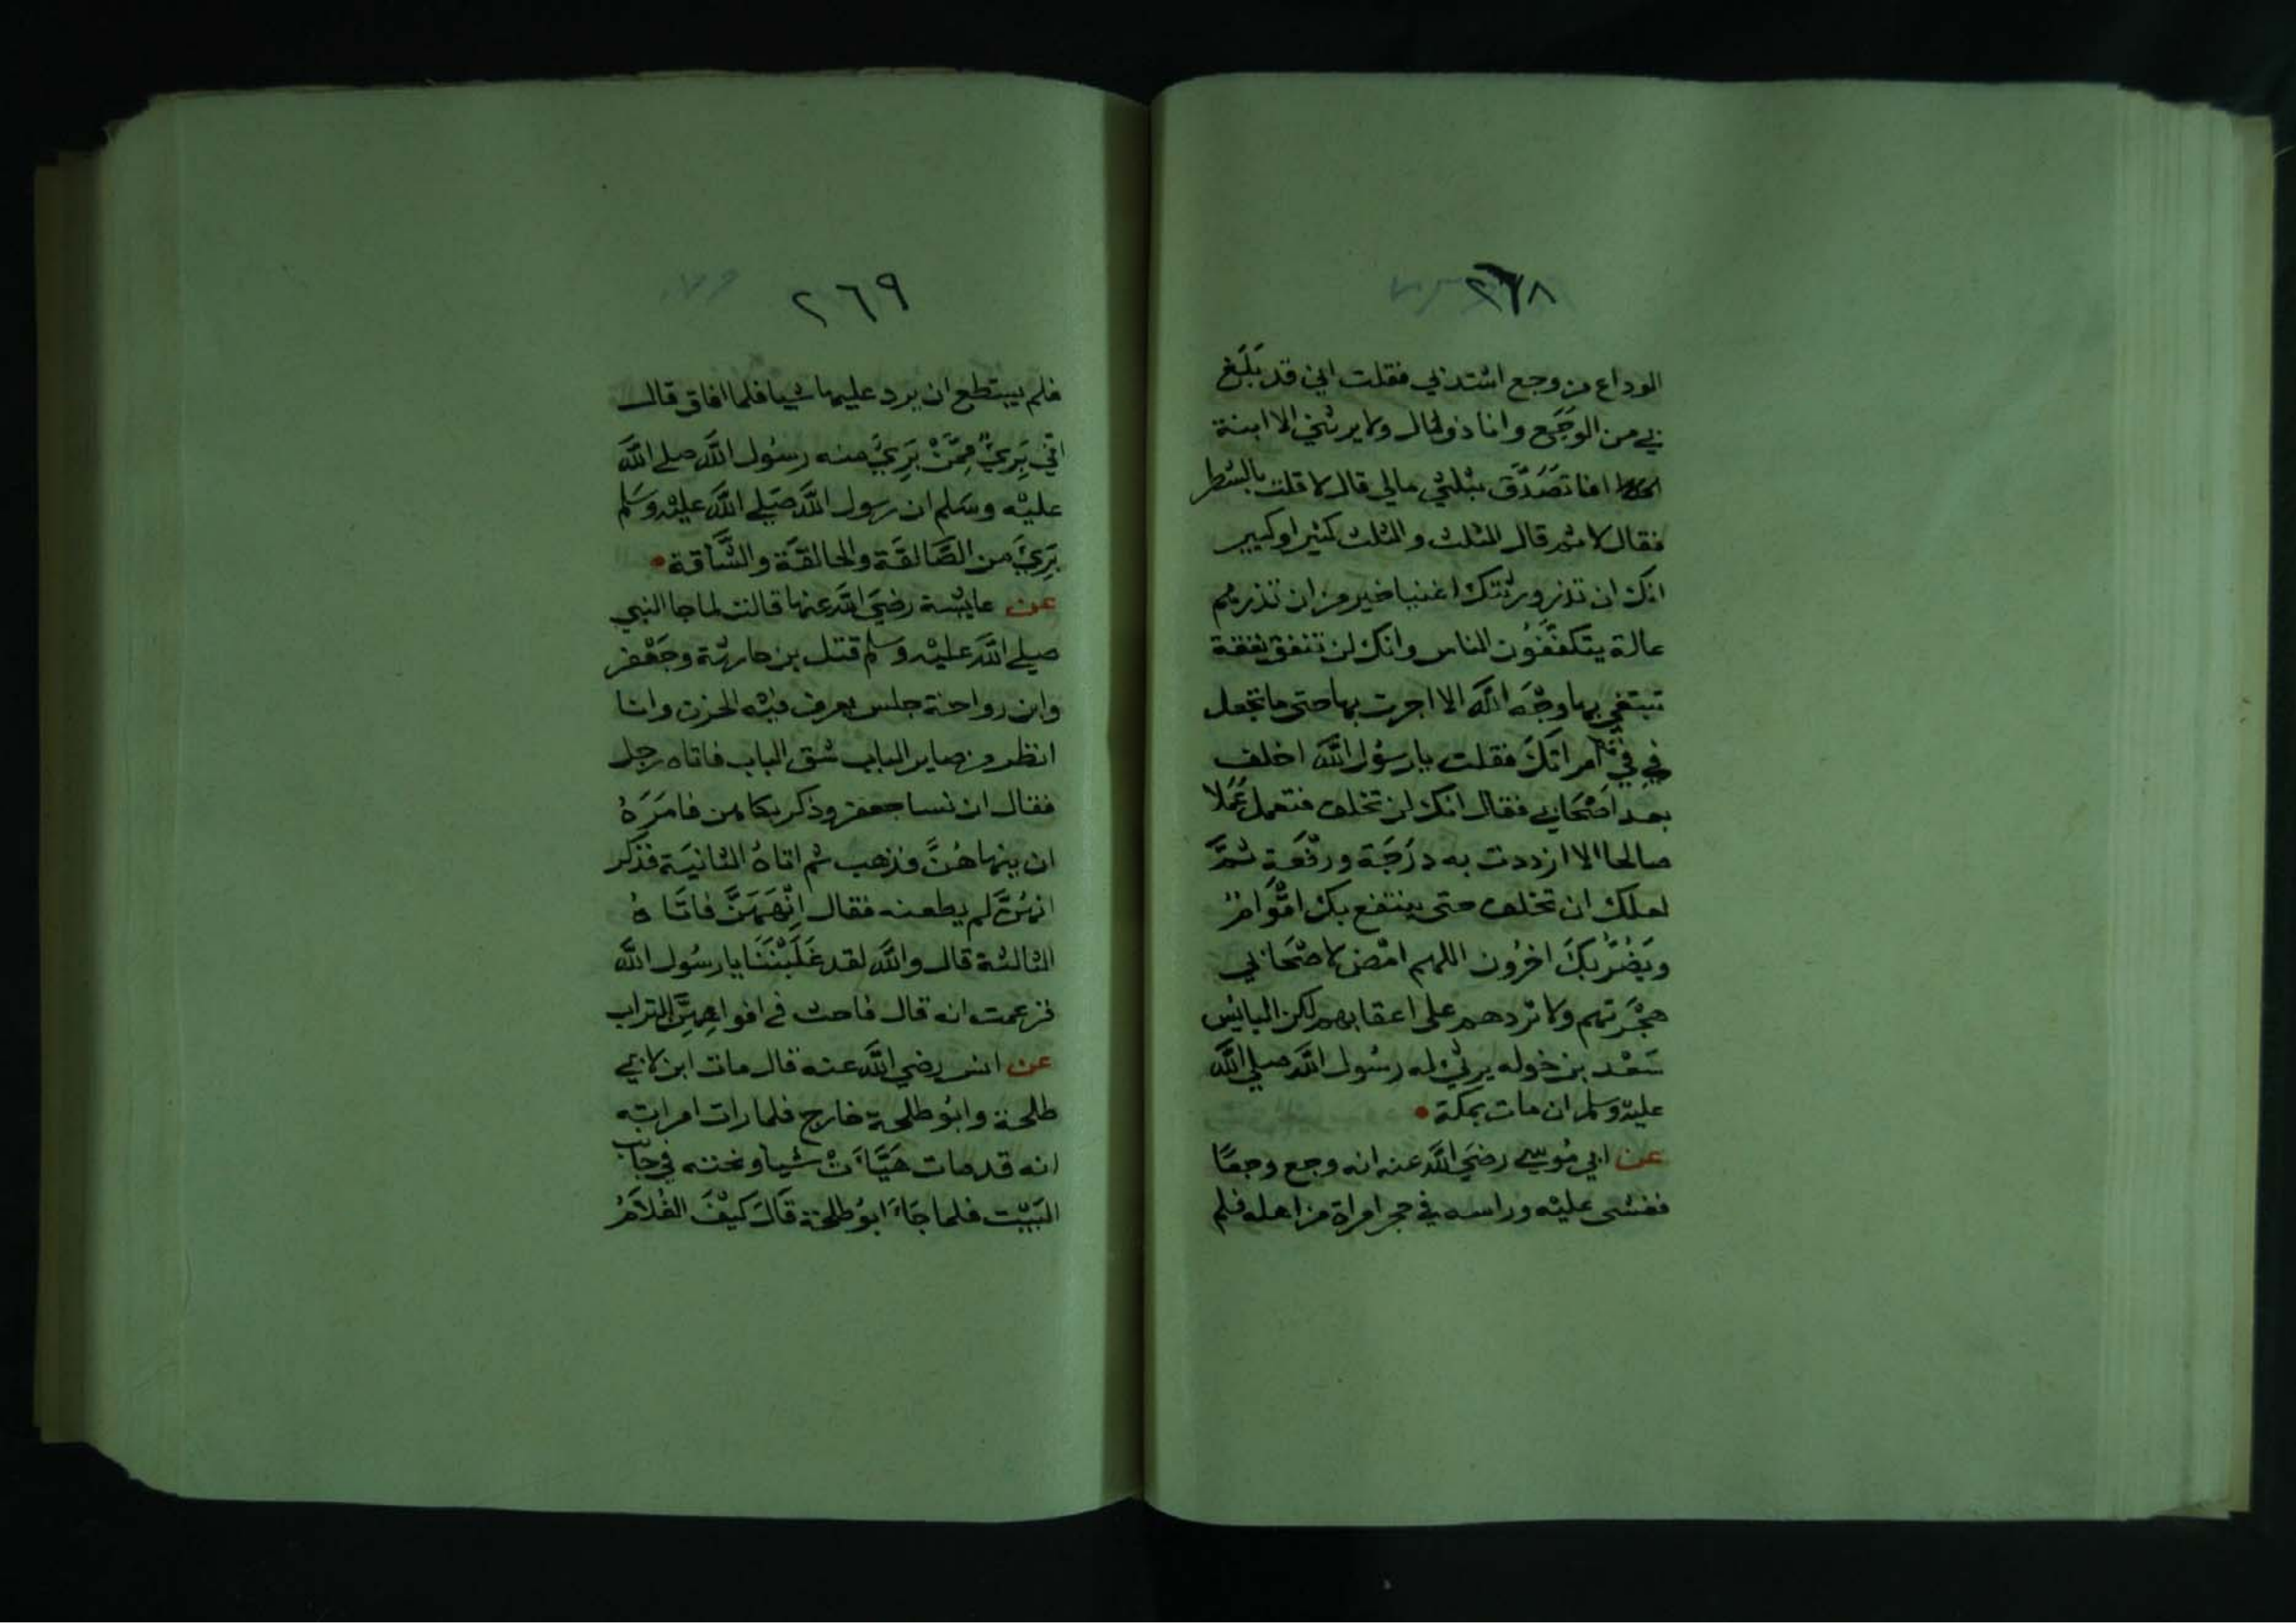 ٢٦٨
الوداع من وجع اشتد بي فقلت اني قد بَلَغ
بي من الوَجَع وانا ذو مال ولا يرثني الا ابنة
افاتصَدَّق بثلثي مالي قال لا قلت بالشطر
فقال لا ثم قال الثلث والثلث كثير او كبير
انك ان تذر ورثتك اغنيا خير من ان تذرهم
عالة يتكففُون الناس وانك لن تنفق نفقة
تبتغي بها وجْه الله الا اجرت بها حتى ما تجعل
في في امراتك فقلت يا رسُول الله اخلف
بعد اصْحَابي فقال انك لن تخلف فتعمل عَمَلا
صالحا الا ازددت به درَجَة ورفْعَة ثمَّ
لعلك ان تخلف حتى ينتفع بك اقْوَامٌ
ويَضُرَّ بكَ اخرُون اللهم امْض لاصْحَابي
هجْرَتهم ولا تردهم على اعقابهم لكن البايْس
سَعْد بن خوله يرثي له رسُول الله صلي الله
عليه وسلم ان مات بمكة
عن ابي مُوسي رضيَ الله عنه انه وجع وجعًا
فغشى عليْه وراسه في حجر امراة من اهله فلم
٢٦٩
فلم يستطع ان يرد عليها شيا فلما افاق قال
اني بَرِيٌ مِمَّنْ بَرِيَ منه رسُول الله صلي الله
عليْه وسَلم ان رسول الله صَلي الله عليْه وسَلم
بَرِيَ من الصَّالقَة والحالقَة والشَّاقة
عن عايشة رضيَ الله عنها قالت لما جا النبي
صلي الله عليْه وسلم قتل بن حارثة وجَعْفر
وابن رواحة جلس يعرف فيْه الحزن وانا
انظر من صاير الباب شق الباب فاتاه رجل
فقال ان نسا جعفر وذكر بكاهن فامَرَهُ
ان ينهاهُنَّ فذهب ثم اتاهُ الثانيَة فذكر
انهُنَّ لم يطعنه فقال انْهَهُنَّ فاتَاهُ
الثالثة قال والله لقد غَلَبْنَنَا يا رسُول الله
فزعمت انه قال فاحث في افواهِهِنَّ التراب
عن انس رضي الله عنه قال مات ابن لابي
طلحة وابُو طلحة خارج فلما رات امراته
انه قد مات هَيَّاَتْ شيا ونحته في جانب
البَيْت فلما جَاَءَ ابوُ طلحَة قَالَ كيْفَ الغُلاَمُ